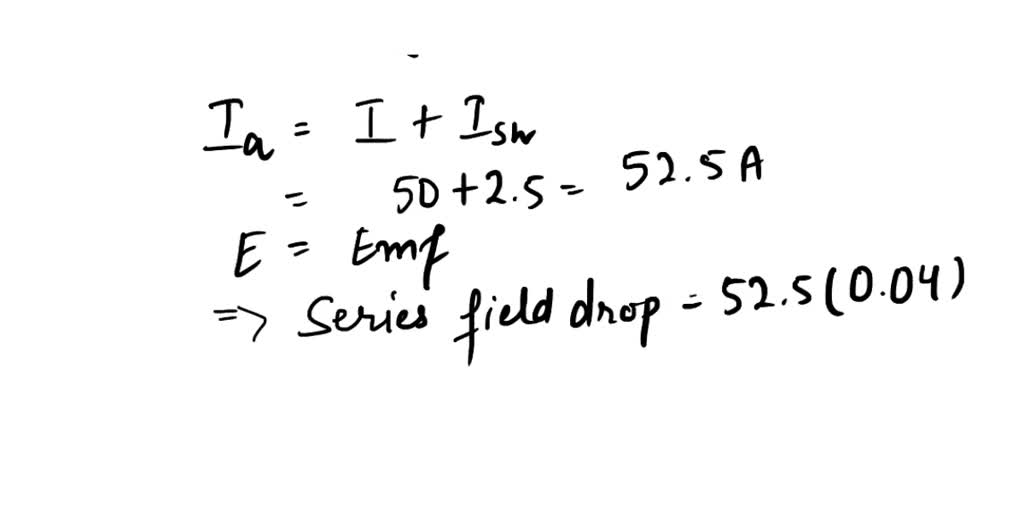 Ia = I + Ish
= 50 + 2.5 = 52.5 A
E = Emf
=> Series field drop = 52.5 (0.04)